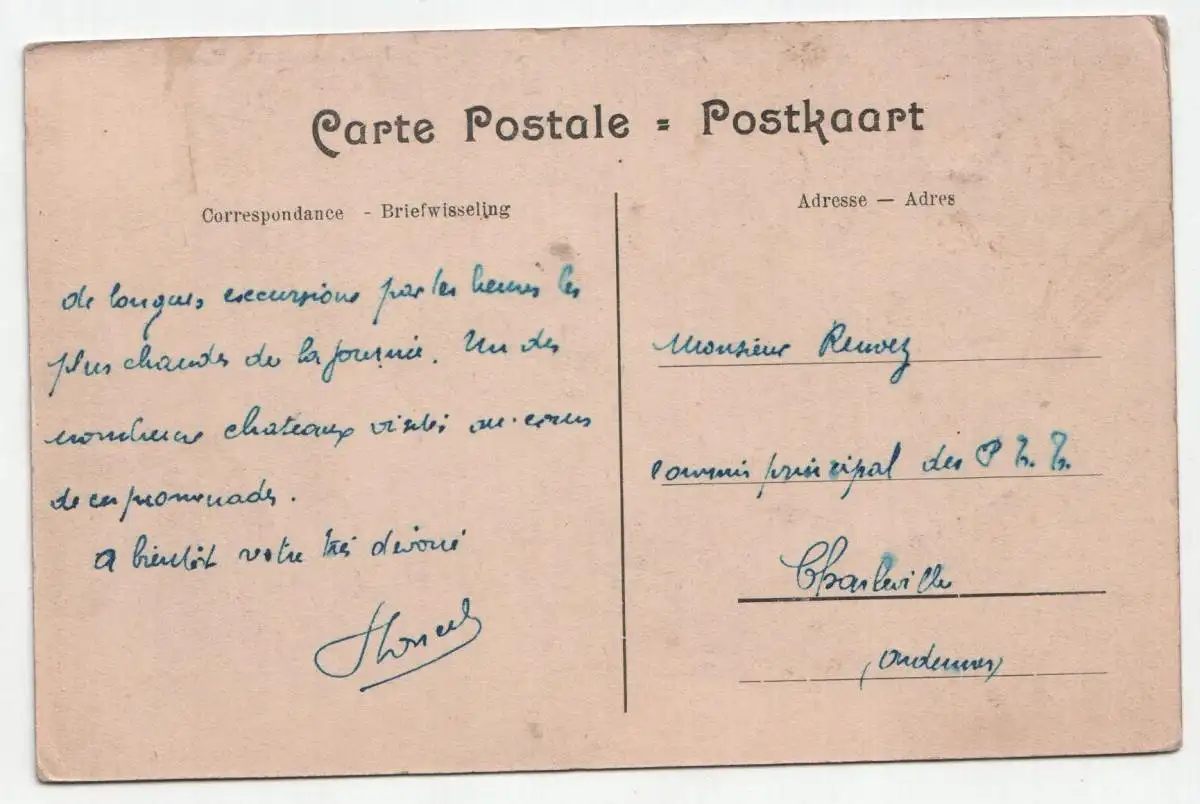 Carte Postale = Postkaart
Correspondance - Briefwisseling
de longues excursions par les heures les
plus chaudes de la journée. Un des
nombreux chateaux visités au cours
de ces promenades.
A bientôt votre très dévoué
Adresse — Adres
Monsieur Renvez
commis principal des P.T.T.
Charleville
(Ardennes)